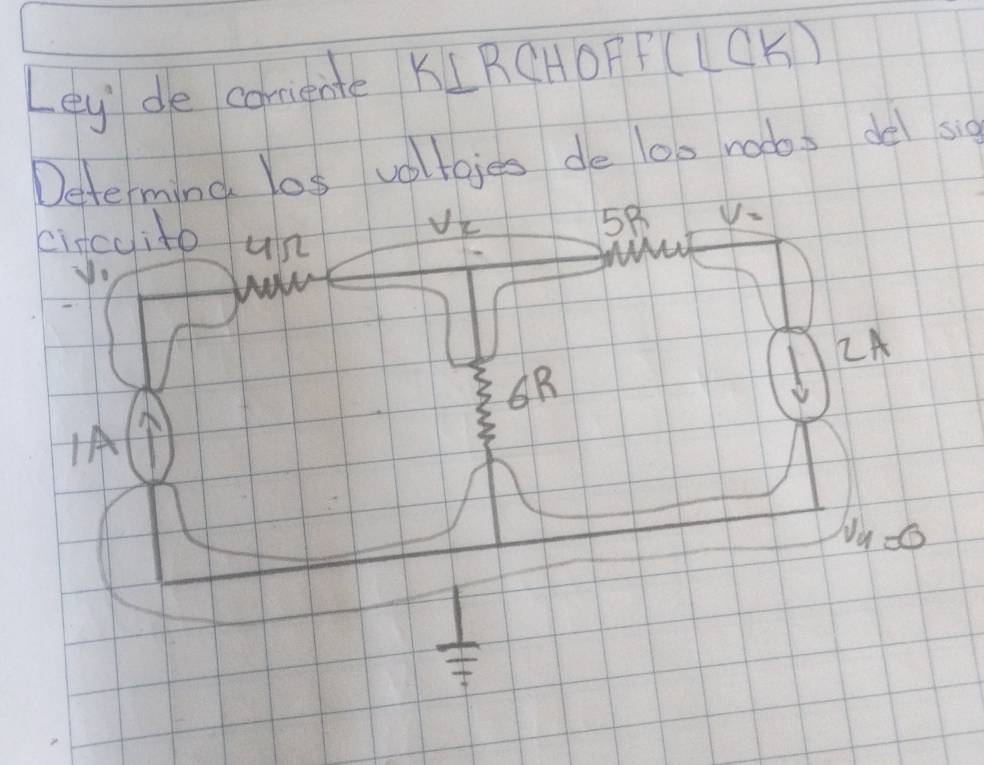 Ley de corriente KIRCHOFF (LCK)
Determina los voltajes de los nodos del sig
circuito
4Ω
V2
5R
V-
V1
2A
6R
1A
V4=0